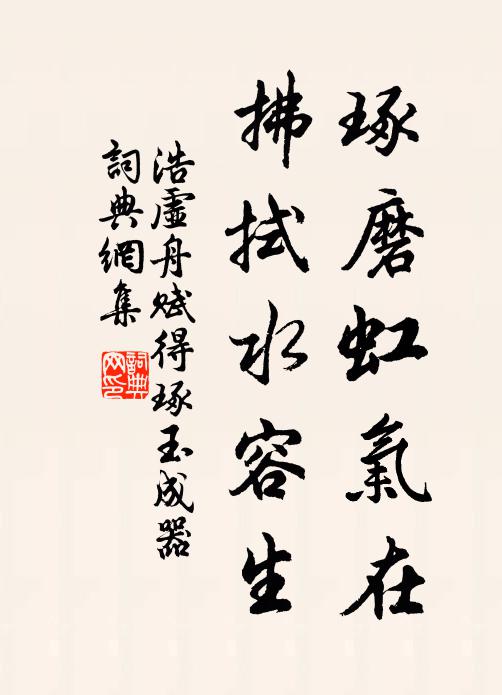 琢磨虹氣在
拂拭水容生
浩虛舟賦得琢玉成器
詞典網集
詞典網印